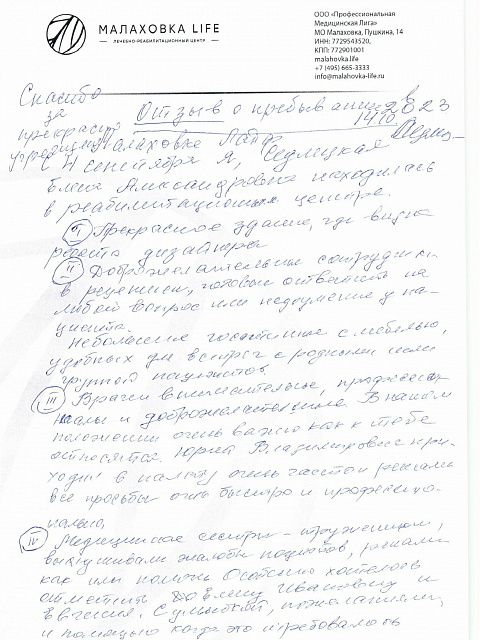 MALAХОВКА LIFE
ЛЕЧЕБНО-РЕАБИЛИТАЦИОННЫЙ ЦЕНТР
ООО «Профессиональная
Медицинская Лига»
МО Малаховка, Пушкина, 14
ИНН: 7729543520,
КПП: 772901001
malahovka.life
+7 (495) 665-3333
info@malahovka-life.ru
Спасибо
за
Отзыв о пребывании в
14.10.2023
Малаховке Лайф
С 11 сентября я, Седлецкая
Александровна находилась
в реабилитационном центре.
I Прекрасное здание, где видна
работа дизайнера
II Доброжелательные сотрудники
в рецепшен, готовые ответить на
любой вопрос или недоумение у па-
циента.
Небольшие гостиные с мебелью,
удобных для встреч с родными или
группой пациентов.
III Врачи внимательные, професси-
оналы и доброжелательные В нашем
положении очень важно как к тебе
относятся. Юрий Владимирович при-
ходил в палату очень часто и решал
все просьбы очень быстро и професcио-
нально.
IV Медицинские сестры - труженицы,
выслушивали жалобы пациентов, решали
как им помочь Особенно хотелось
отметить Ивановну и
Евгения. С улыбкой, пожеланиями,
и помощью когда это требовалось